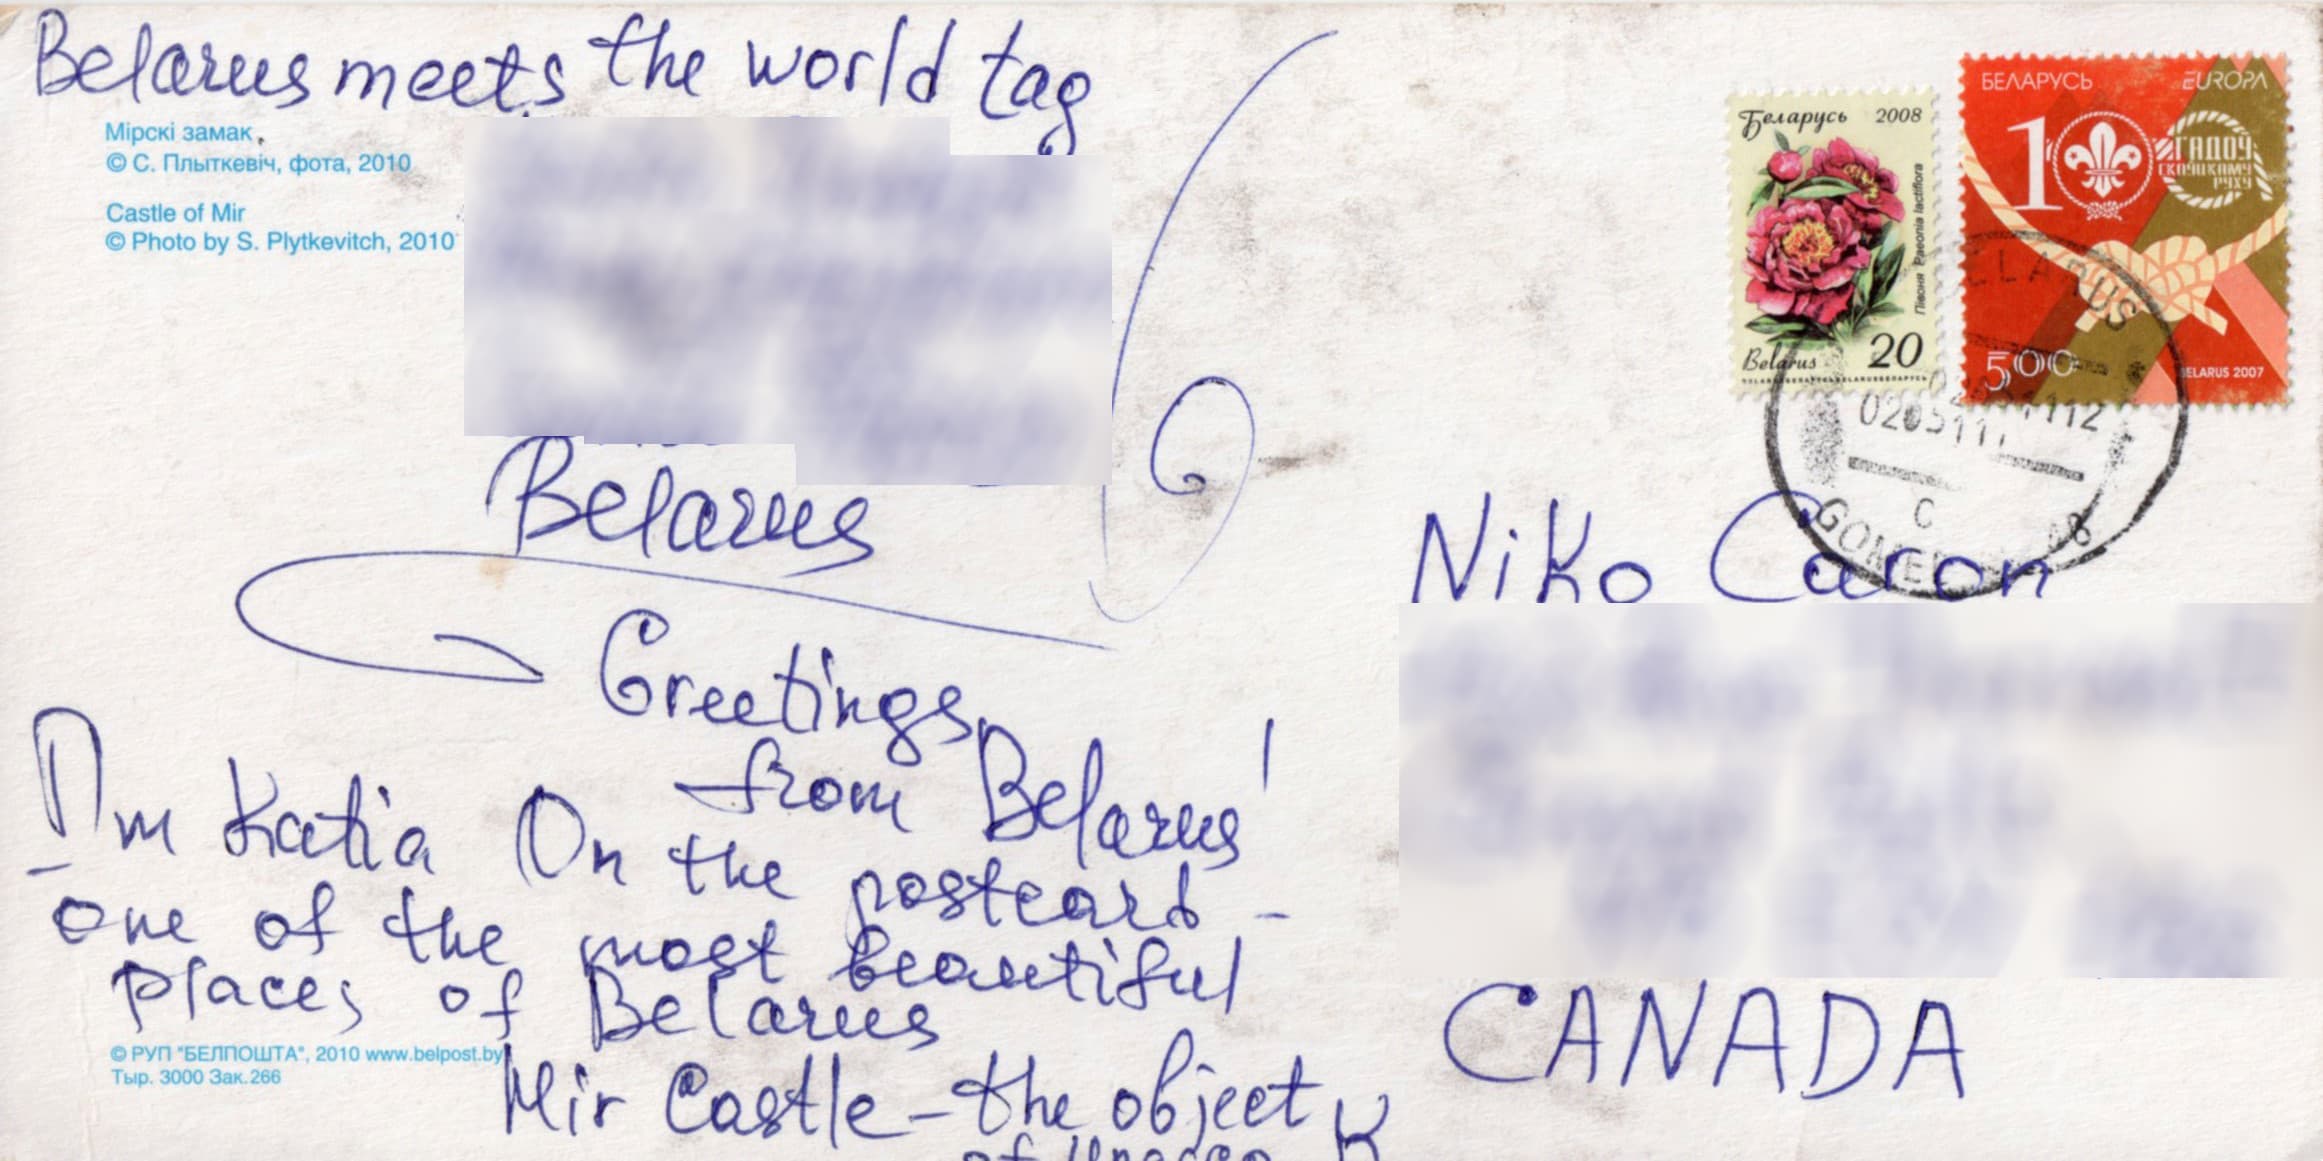 Belarus meets the world tag
Мірскі замак
© С. Плыткевіч, фота, 2010
Castle of Mir
© Photo by S. Plytkevitch, 2010
Belarus
Greetings
from Belarus!
I'm Katia On the postcard -
one of the most beautiful
places of Belarus
Mir Castle – the object
of Unesco
© РУП "БЕЛПОШТА", 2010 www.belpost.by
Тыр. 3000 Зак.266
Беларусь 2008
Півоня Paeonia lactiflora
Belarus 20
БЕЛАРУСЬ EUROPA
100 ГАДОЎ
СКАЎЦКАМУ
РУХУ
500
BELARUS 2007
BELARUS
C
GOMEL
Niko Caron
CANADA